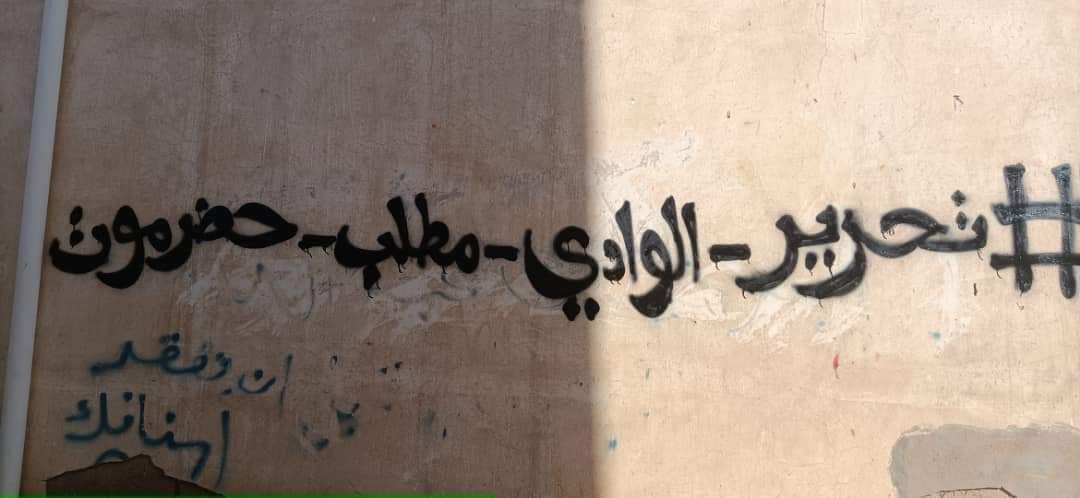 #تحرير_الوادي_مطلب_حضرموت
ان نفقد